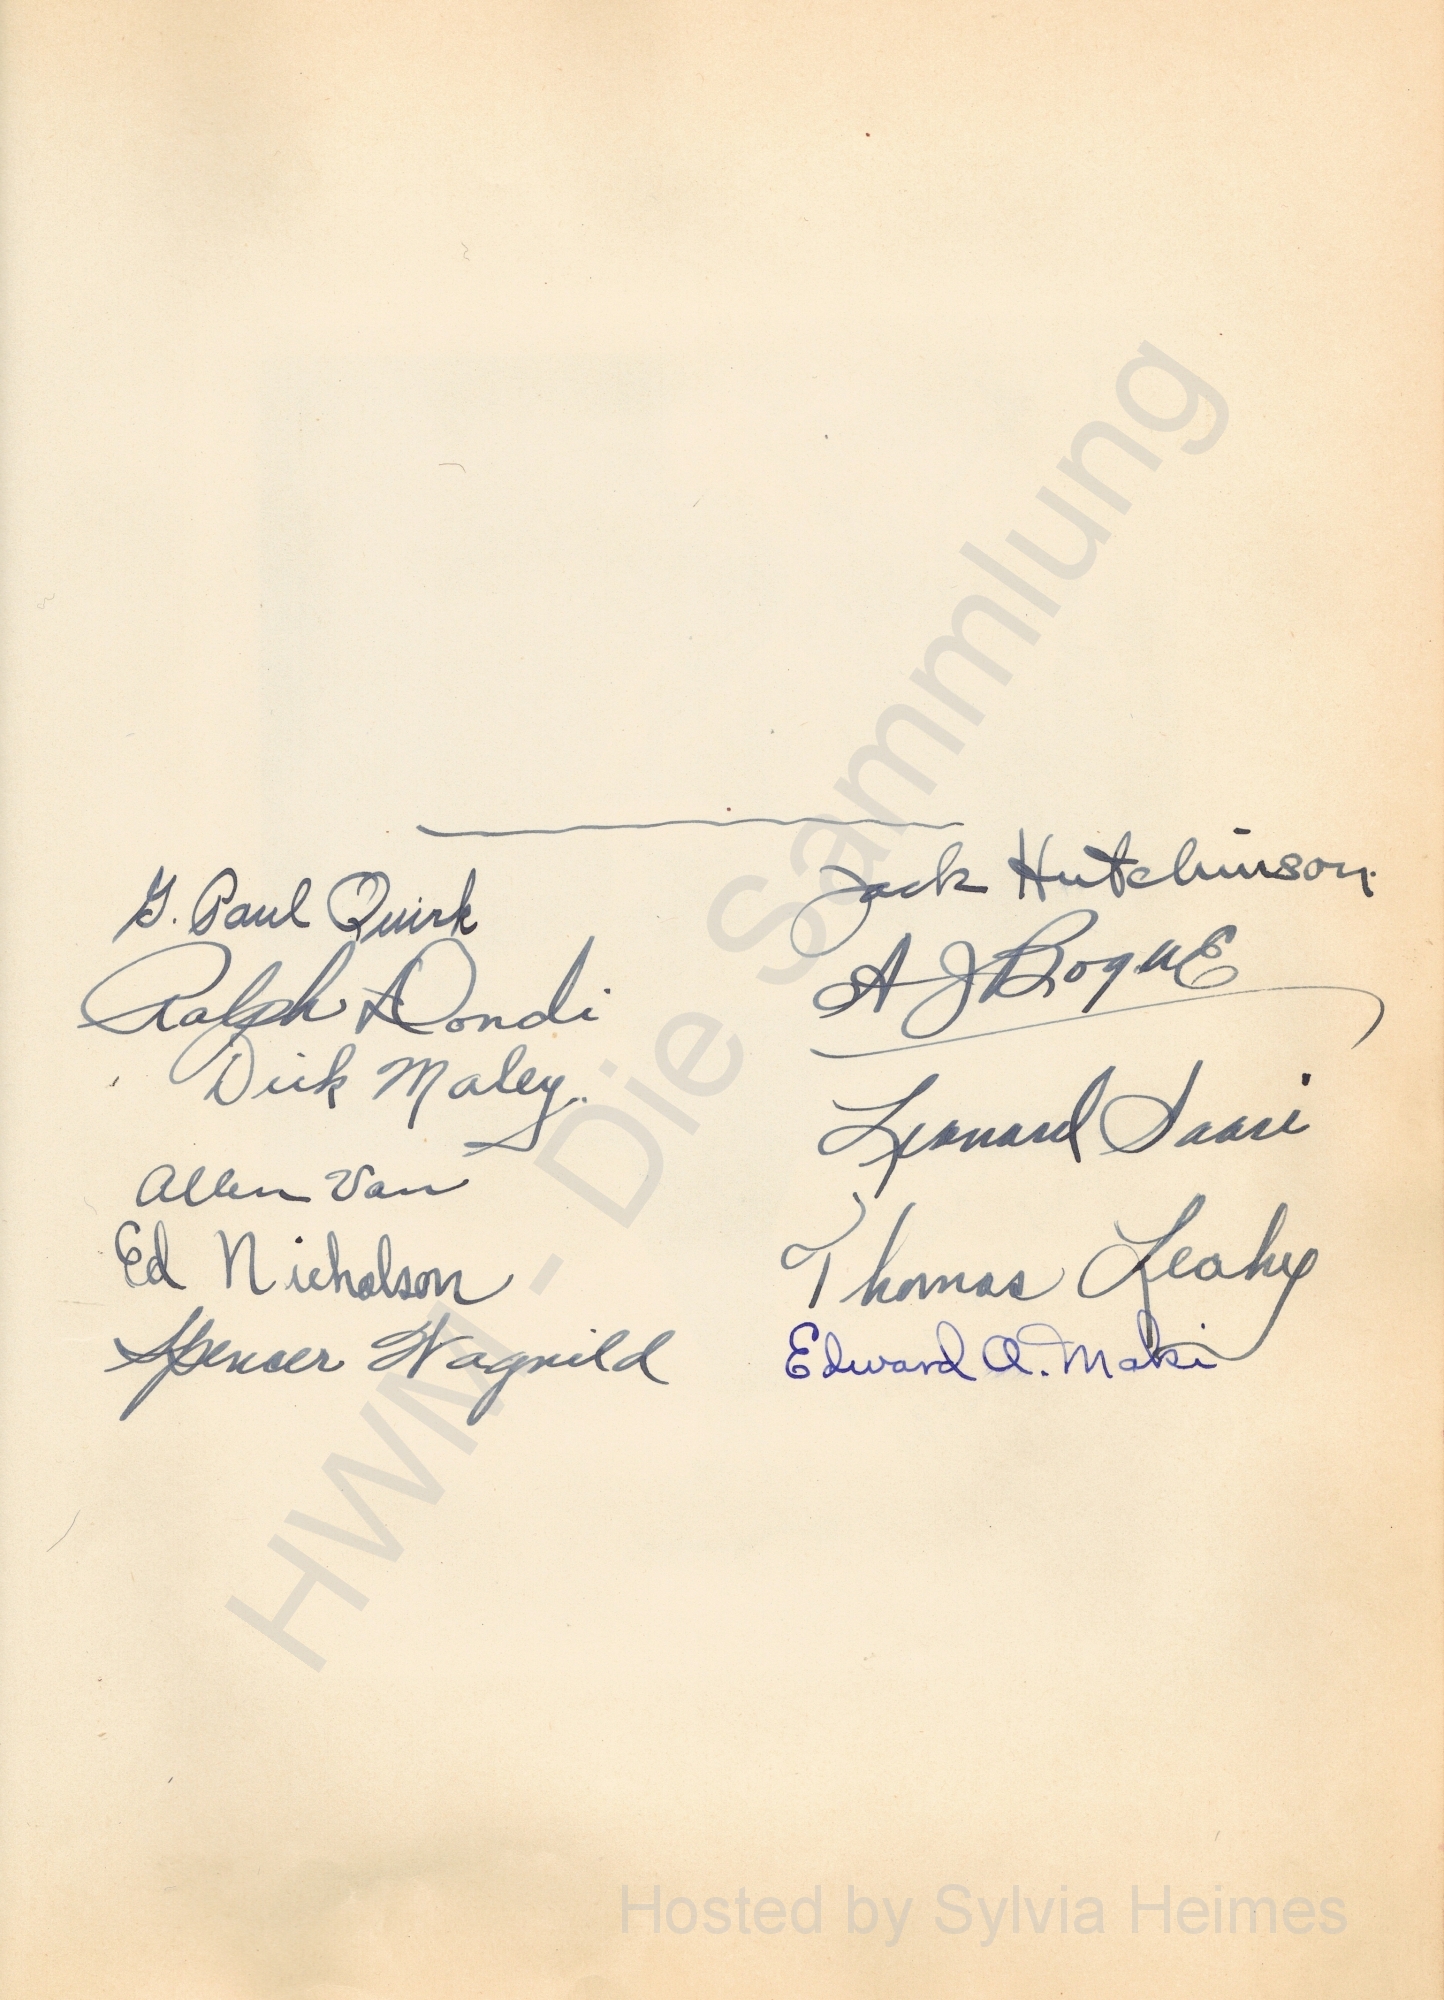 G. Paul Quirk
Ralph Dondi
Dick Maley.
Allen Van
Ed Nicholson
Spencer Wagnild
Jack Hutchinson.
A J Bogue
Leonard Saari
Thomas Leahy
Edward A. Maki
HWM - Die Sammlung
Hosted by Sylvia Heimes